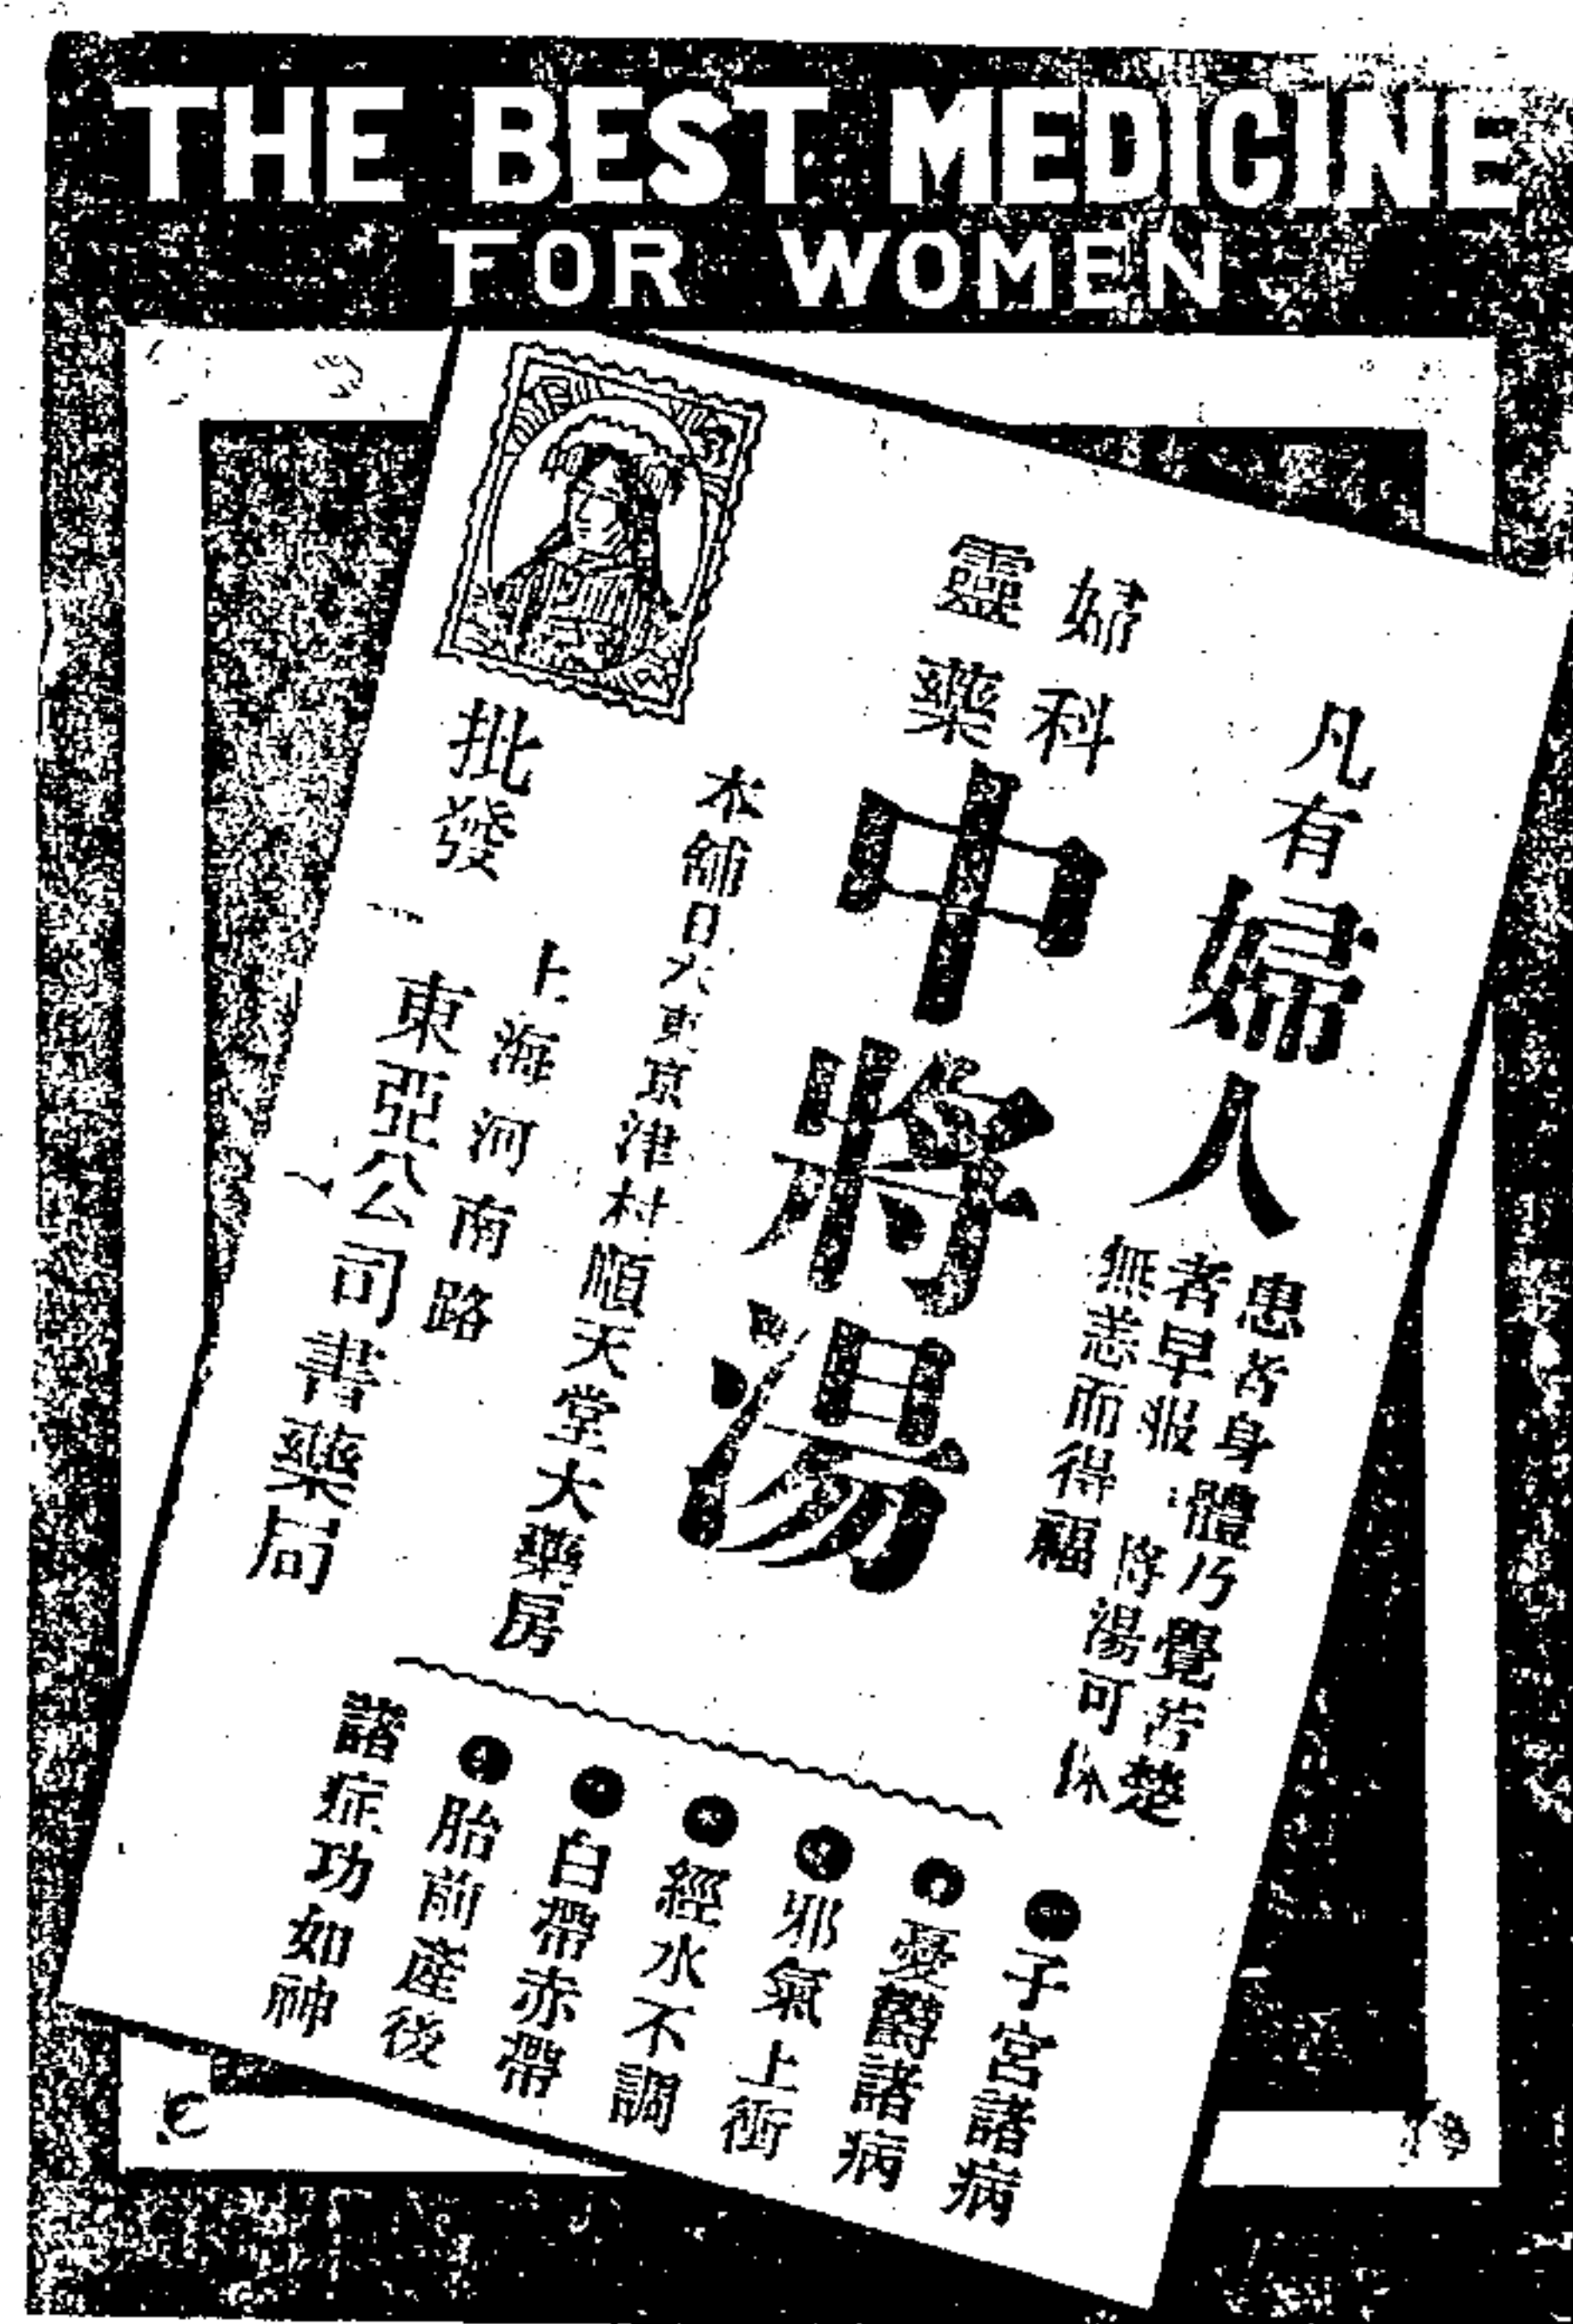 THE BEST MEDICINE
FOR WOMEN
凡有婦人
患者身體乃覺苦楚
者早服 將湯可以
無恙而得福
婦科
靈藥
中將湯
本舖日本東京津村順天堂大藥房
批發
上海河南路
東亞公司書藥局
子宮諸病
憂鬱諸病
邪氣上衝
經水不調
白帶赤帶
胎前產後
諸症功如神